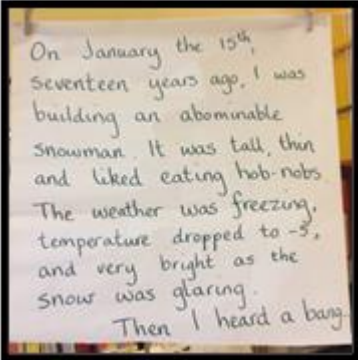 On January the 15th,
seventeen years ago, I was
building an abominable
snowman. It was tall, thin
and liked eating hob-nobs.
The weather was freezing,
temperature dropped to -5,
and very bright as the
snow was glaring.
Then I heard a bang.